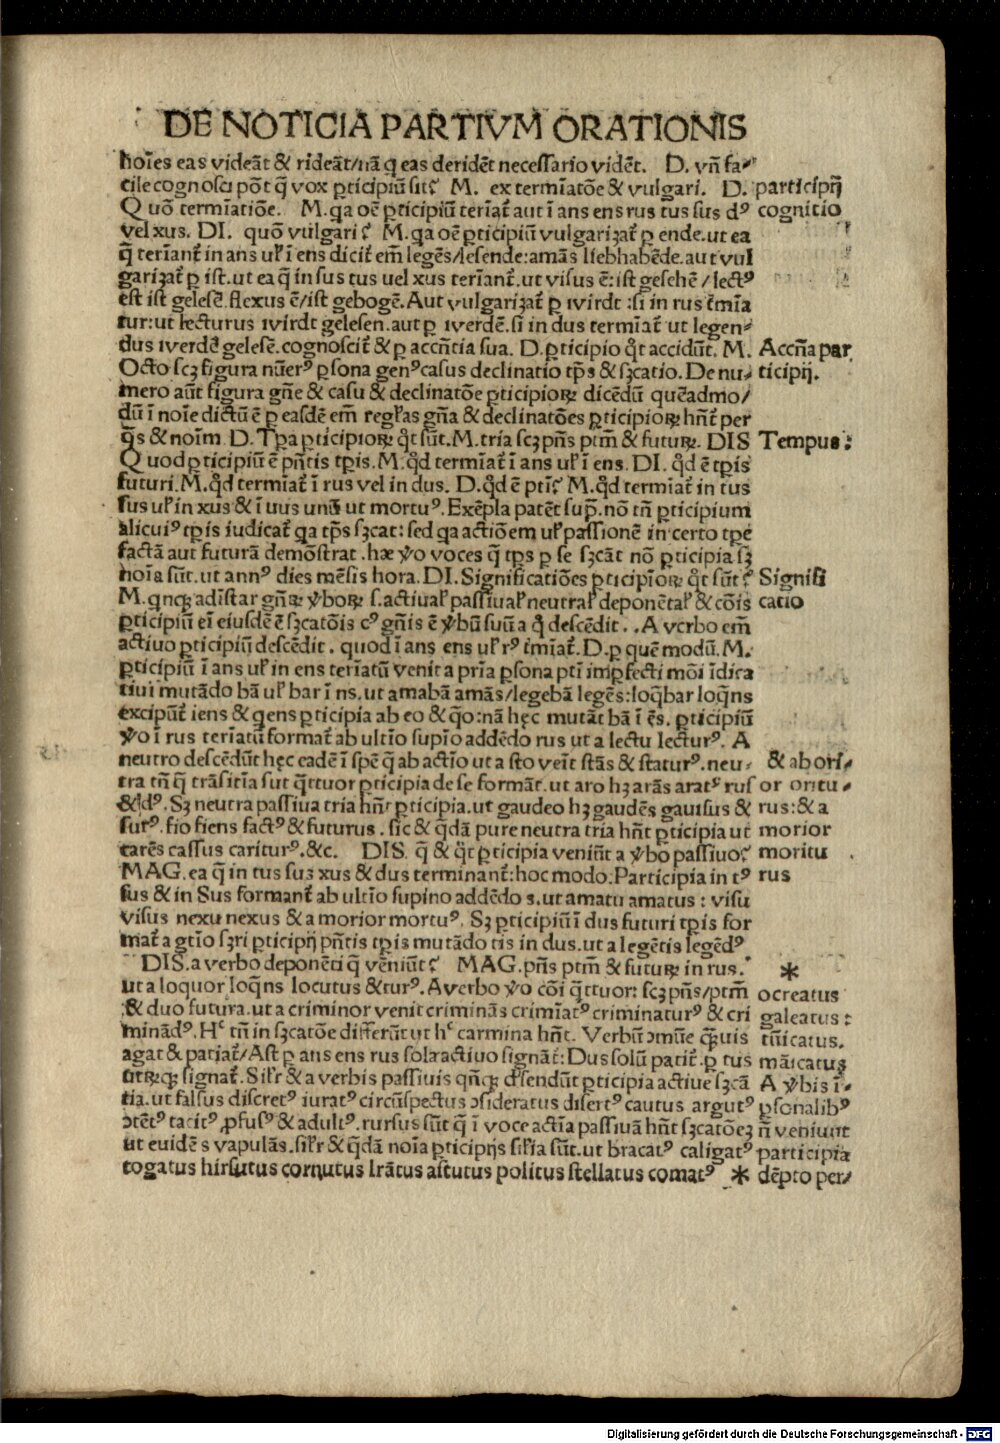 DE NOTICIA PARTIVM ORATIONIS
hoīes eas videāt & rideāt/nā q eas deridēt necessario vidēt. D. vñ fa⸗
cile cognosci pōt q̄ vox p̱ticipiū sit? M. ex termīatōe & vulgari. D.
Quō termīatiōe. M. qa oē p̱ticipiū terīat᷑ aut ī ans ens rus tus sus dꝰ
vel xus. DI. quō vulgari? M. qa oē p̱ticipiū vulgarizat᷑ p̱ ende. ut ea
q̄ terīant᷑ in ans ul̓ ī ens dicit᷑ em̄ legēs/lesende: amās liebhabēde. aut vul
garizat᷑ p̱ ist. ut ea q̄ in sus tus uel xus terīant᷑. ut visus ē: ist gesehē/lectꝰ
est ist gelesē. flexus ē/ist gebogē. Aut vulgarizat᷑ p̱ wirdt: si in rus t̄mīa
tur: ut lecturus wirdt gelesen. aut p̱ werdē. si in dus termīat᷑ ut legen⸗
dus werdē gelesē. cognoscit᷑ & p̱ accn̄tia sua. D. p̱ticipio q̊t accidūt. M.
Octo scꝫ figura nūerꝰ p̱sona genꝰ casus declinatio tp̄s & sꝫcatio. De nu⸗
mero aūt figura gn̄e & casu & declinatōe p̱ticipioꝝ dicēdū quēadmo/
dū ī noīe dictū ē p̱ easdē em̄ regl̓as gn̄a & declinatōes p̱ticipioꝝ hn̄t᷑ per
q̄s & noīm. D. Tp̄a p̱ticipioꝝ q̊t sūt. M. tria scꝫ pn̄s ptm̄ & futuꝝ. DIS
Quod p̱ticipiū ē pn̄tis tp̄is. M. q̊d termīat᷑ ī ans ul̓ ī ens. DI. q̊d ē tp̄is
futuri. M. q̊d termīat᷑ ī rus vel in dus. D. q̊d ē ptī? M. q̊d termīat᷑ in tus
sus ul̓ in xus & ī uus unū ut mortuꝰ. Exēpla patēt sup̄. nō tn̄ p̱ticipium
alicuiꝰ tp̄is iudicat᷑ qa tp̄s sꝫcat: sed qa actiōem ul̓ passionē in certo tp̄e
factā aut futurā demōstrat. hæ v̊o voces q̄ tp̄s p̱ se sꝫcāt nō p̱ticipia sꝫ
noīa sūt. ut annꝰ dies mēsis hora. DI. Significatiōes p̱ticipioꝝ q̊t sūt?
M. qnqꝫ ad īstar gn̄ꝝ v̊boꝝ s. actiual̓ passiual̓ neutral̓ deponētal̓ & cōis
p̱ticipiū eī eiusdē ē sꝫcatōis cꝰ gn̄is ē v̊bū suū a q̊ descēdit. A verbo em̄
actiuo p̱ticipiū descēdit. quod ī ans ens ul̓ rꝰ t̄mīat᷑. D. p̱ quē modū. M.
p̱ticipiū ī ans ul̓ in ens terīatū venit a pria p̱sona ptī imp̱fecti mōi īdica
tiui mutādo bā ul̓ bar ī ns. ut amabā amās/legebā legēs: loq̄bar loq̄ns
excipūt᷑ iens & qens p̱ticipia ab eo & q̄o: nā hęc mutāt bā ī ēs. p̱ticipiū
v̊o ī rus terīatū format᷑ ab ultīo supīo addēdo rus ut a lectu lecturꝰ. A
neutro descēdūt hęc eadē ī spē q̄ ab actīo ut a sto veīt stās & staturꝰ. neu⸗
tra tn̄ q̄ trāsitīa sut q̄ttuor p̱ticipia de se formāt. ut aro hꝫ arās aratꝰ rus
& dꝰ. Sꝫ neutra passiua tria hn̄t p̱ticipia. ut gaudeo hꝫ gaudēs gauisus &
surꝰ. fio fiens factꝰ & futurus. sic & q̄dā pure neutra tria hn̄t p̱ticipia ut
carēs cassus cariturꝰ. &c. DIS. q̄ & q̊t p̱ticipia veniūt a v̊bo passiuo?
MAG. ea q̄ in tus suꝫ xus & dus terminant᷑: hoc modo. Participia in tꝰ
sus & in Sus formant᷑ ab ultīo supino addēdo s. ut amatu amatus: visu
visus nexu nexus & a morior mortuꝰ. Sꝫ p̱ticipiū ī dus futuri tp̄is for
mat᷑ a gtīo sꝫri p̱ticipij pn̄tis tp̄is mutādo tis in dus. ut a legētis legēdꝰ
DIS. a verbo deponēti q̄ vēniūt? MAG. pn̄s ptm̄ & futuꝝ in rus.
ut a loquor loq̄ns locutus & turꝰ. A verbo v̊o cōi q̄ttuor: scꝫ pn̄s/ptm̄
& duo futura. ut a criminor venit criminās crimīatꝰ criminaturꝰ & cri
minādꝰ. Hc tn̄ in sꝫcatōe differūt ut hc carmina hn̄t. Verbū ↄmūe q̄uis
agat & patiat᷑/Ast p̱ ans ens rus sola actiuo signāt: Dus solū patit᷑. p̱ tus
utꝝqꝫ signat᷑. Sil̓r & a verbis passiuis qn̄qꝫ descendūt p̱ticipia actiue sꝫcā
tia. ut falsus discretꝰ iuratꝰ circūspectus ↄsideratus disertꝰ cautus argutꝰ
ↄtētꝰ tacitꝰ ꝓfusꝰ & adultꝰ. rursus sūt q̄ ī voce actīa passiuā hn̄t sꝫcatōeꝫ
ut euidēs vapulās. sil̓r & q̄dā noīa p̱ticipijs sil̓ia sūt. ut bracatꝰ caligatꝰ
togatus hirsutus cornutus lrātus astutus politus stellatus comatꝰ *
participij
cognitio
Accn̄a par
ticipij.
Tempus:
Signifi
catio
& ab ori⸗
or oritu⸗
rus: & a
morior
moritu
rus
*
ocreatus
galeatus:
tūicatus.
māicatus
A v̊bis ī⸗
p̱sonalibꝰ
n̄ veniunt
participia
dēpto per/